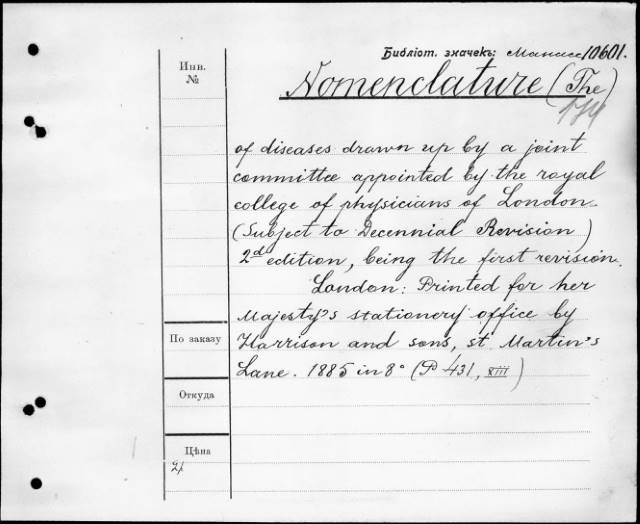 Библіот. значекъ: Манасс 10601.
Инв.
№
Nomenclature (The)
of diseases drawn up by a joint
committee appointed by the royal
college of physicians of London.
(Subject to Decennial Revision)
2d edition, being the first revision.
London: Printed for her
Majesty's stationery office by
Harrison and sons, st. Martin's
Lane. 1885 in 8° (P 431, XIII)
По заказу
Откуда
Цѣна